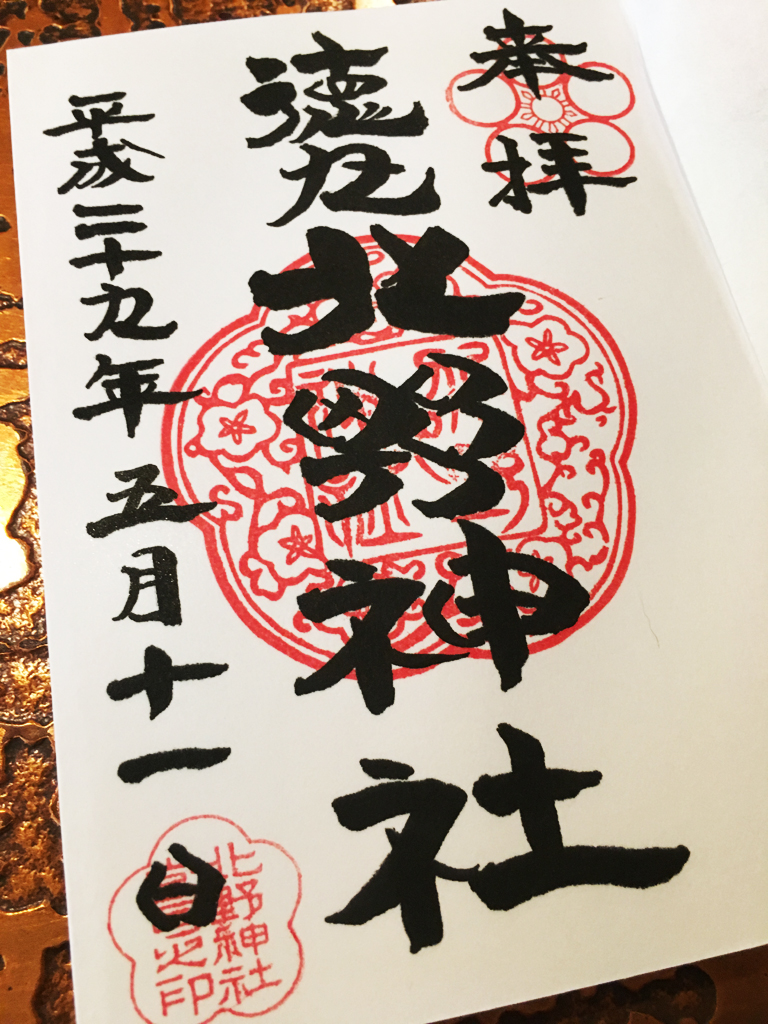 奉拝
徳丸
北野神社
平成二十九年五月十一日
北野神社